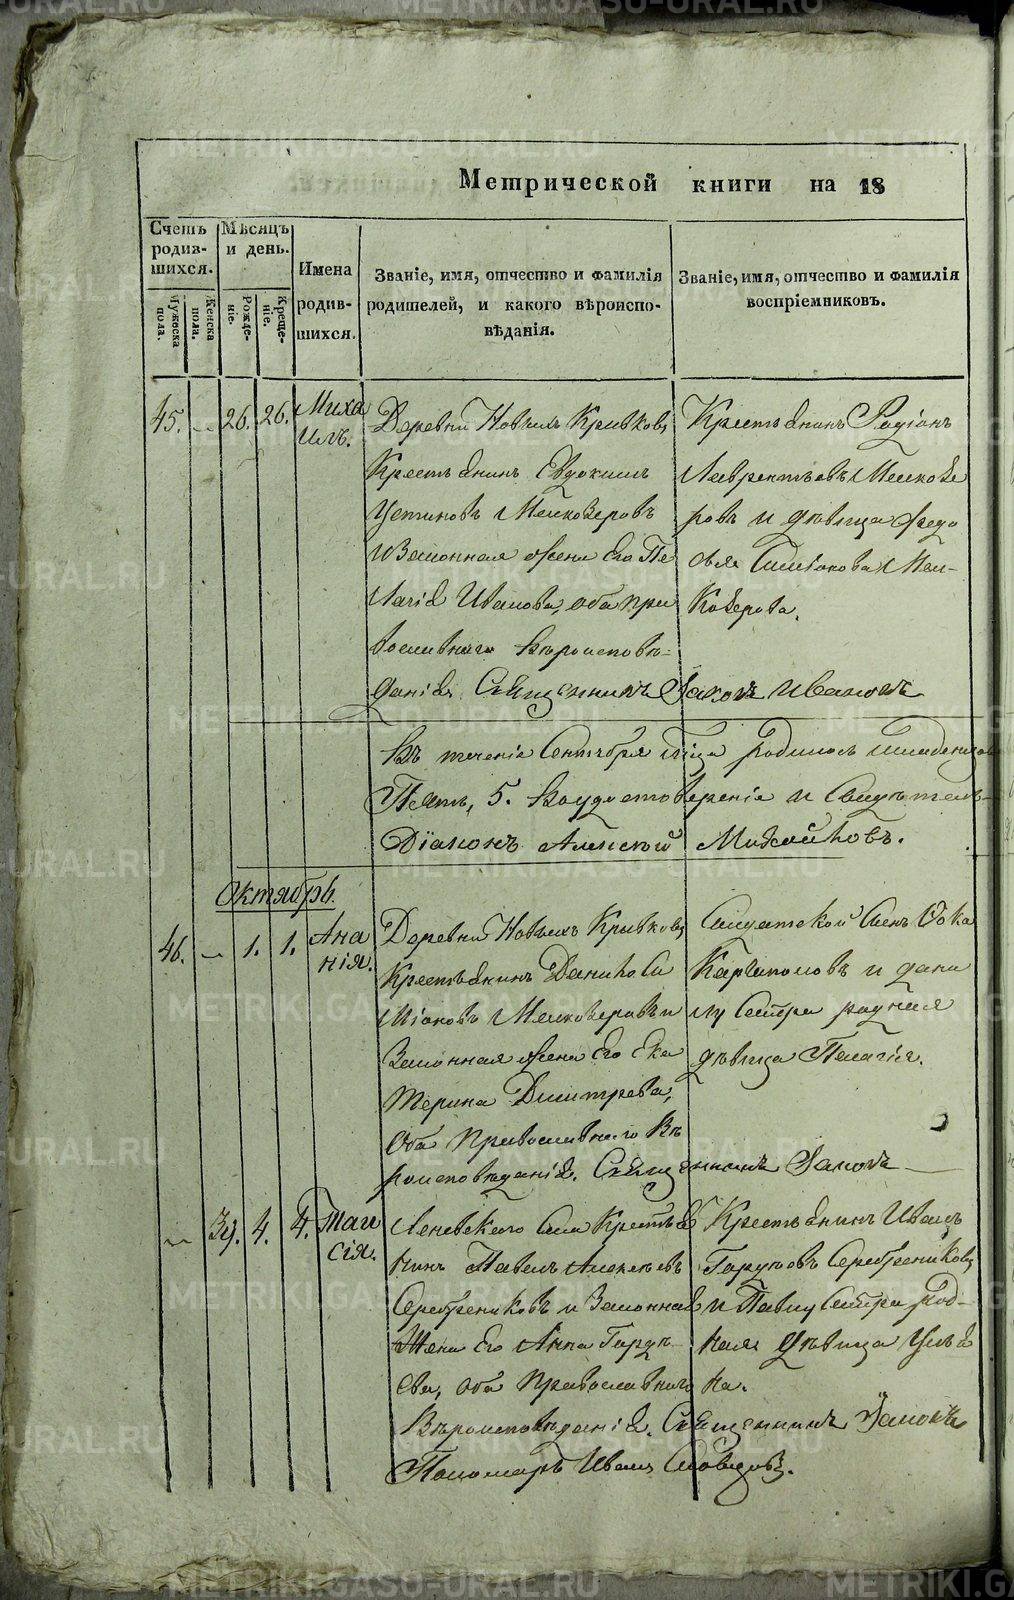 Метрической книги на 18
Счетъ родив-шихся.
Мужеска пола.
Женска пола.
Мѣсяцъ и день.
Рожде-ніе.
Креще-ніе.
Имена родив-шихся.
Званіе, имя, отчество и фамилія
родителей, и какого вѣроиспо-
вѣданія.
Званіе, имя, отчество и фамилія
воспріемниковъ.
45. 26. 26. Миха
илъ.
Деревни Новыхъ Кривковъ
Крестьянинъ Евдокимъ
Устиновъ
и Законная жена Его Пе
лагія Иванова, оба пра
вославнаго Вѣроисповѣ-
данія.
Крестьянинъ Родіонъ
Лаврентьевъ
ровъ и дѣвица Ѳедо
сья
Священникъ Іаковъ Ивановъ
Въ теченіе Сентября родилось младенцовъ
Пять, 5. Въ удостовѣреніе и Свидѣтель-
Діаконъ Алексѣй
Октябрь.
46. 1. 1. Ана
нія.
Деревни Новыхъ Кривковъ
Крестьянинъ Данило Си
міоновъ
Законная жена Его Ека
терина Димитрева,
Оба Православнаго Вѣ
роисповѣданія. Священникъ Іаковъ
Солдатской Сынъ Ѳока
и дани
лу Сестра родная
дѣвица Пелагія.
39. 4. 4. Таи
сія.
Леневскаго Села Крестья
нинъ Павелъ Алексѣевъ
Серебрениковъ и Законная
Жена Его Анна Гордѣ-
ева, оба Православнаго
Вѣроисповѣданія. Священникъ Іаковъ
Крестьянинъ Иванъ
Гордѣевъ Серебрениковъ
и Павлу Сестра род-
ная дѣвица Улья
на.
Пономарь Иванъ
METRIKI.GASO-URAL.RU